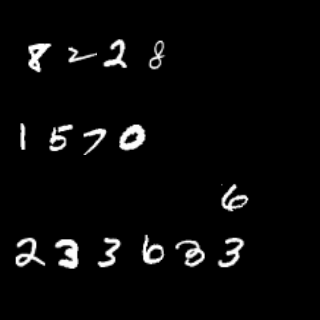 8 2 2 8
1 5 7 0
6
2 3 3 6 3 3